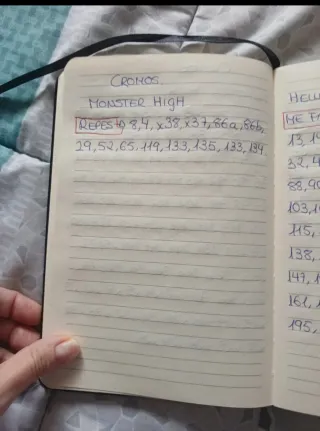 CROMOS.
MONSTER HIGH
REPES → 8, 4, x38, x37, 86a, 86b,
29, 52, 65, 119, 133, 135, 133, 134
HELL
ME FA
13, 1
32, 4
88, 90
103, 10
115,
138,
147, 1
161, 1
195,